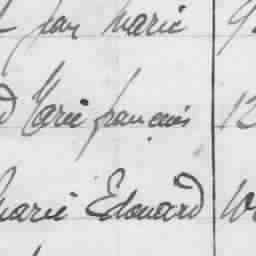 Jean Marie 9
Marie françois 12
Marie Edouard